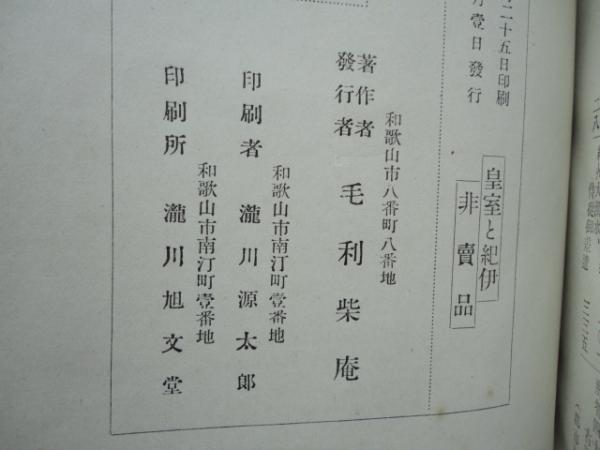 二十五日印刷
月壹日發行
皇室と紀伊
非賣品
和歌山市八番町八番地
著作者
發行者
毛利柴庵
和歌山市南汀町壹番地
印刷者 瀧川源太郎
和歌山市南汀町壹番地
印刷所 瀧川旭文堂